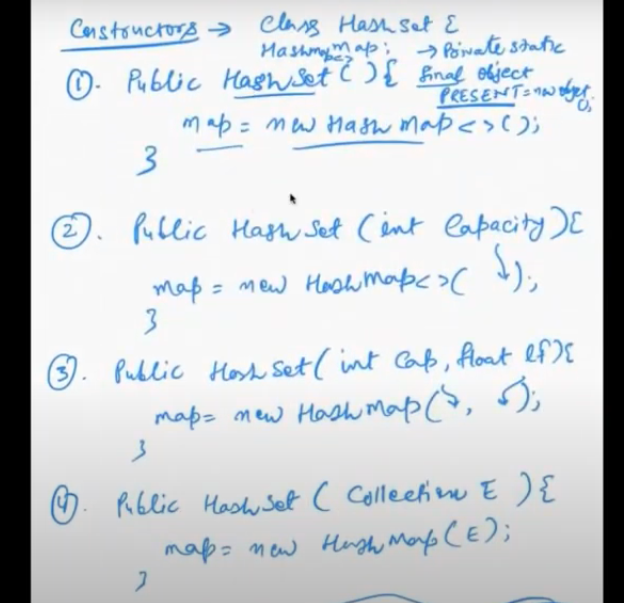 Constuctors → Class HashSet {
Hashmap<> map; → Private static
①. Public HashSet () { final object
PRESENT = new object();
map = new Hash map < > ();
}
②. Public Hash Set (int Capacity) {
map = new HashMap < > ( );
}
③. Public Hash Set ( int Cap, float lf) {
map = new HashMap ( , );
}
④. Public HashSet ( Collection E ) {
map = new HashMap (E);
}